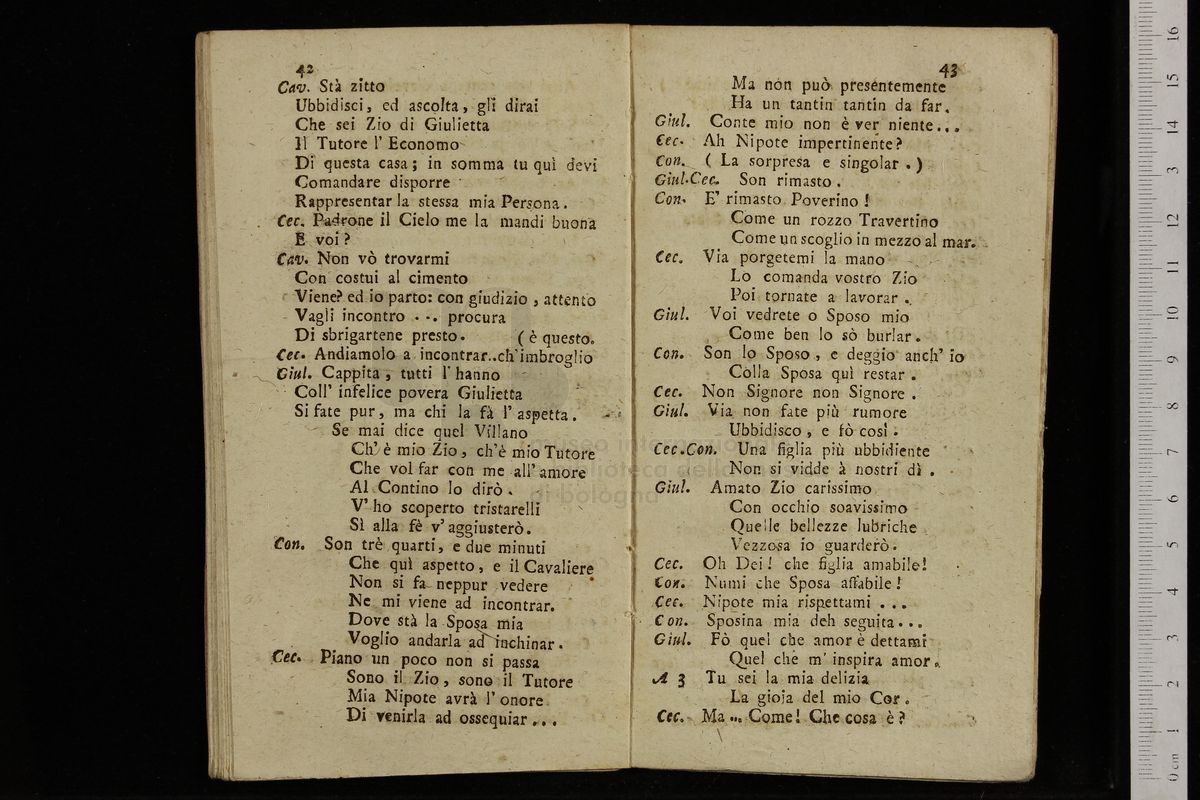 42
Cav. Stà zitto
Ubbidisci, ed ascolta, gli dirai
Che sei Zio di Giulietta
Il Tutore l' Economo
Di questa casa; in somma tu quì devi
Comandare disporre
Rappresentar la stessa mia Persona.
Cec. Padrone il Cielo me la mandi buona
E voi?
Cav. Non vò trovarmi
Con costui al cimento
Viene? ed io parto: con giudizio, attento
Vagli incontro ... procura
Di sbrigartene presto. ( è questo.
Cec. Andiamolo a incontrar..ch'imbroglio
Giul. Cappita, tutti l' hanno
Coll' infelice povera Giulietta
Si fate pur, ma chi la fà l' aspetta.
Se mai dice quel Villano
Ch' è mio Zio, ch'è mio Tutore
Che vol far con me all' amore
Al Contino lo dirò.
V' ho scoperto tristarelli
Sì alla fè v' aggiusterò.
Con. Son trè quarti, e due minuti
Che quì aspetto, e il Cavaliere
Non si fa neppur vedere
Ne mi viene ad incontrar.
Dove stà la Sposa mia
Voglio andarla ad inchinar.
Cec. Piano un poco non si passa
Sono il Zio, sono il Tutore
Mia Nipote avrà l' onore
Di venirla ad ossequiar...
43
Ma non può presentemente
Ha un tantin tantin da far.
Giul. Conte mio non è ver niente...
Cec. Ah Nipote impertinente?
Con. ( La sorpresa e singolar . )
Giul.Cec. Son rimasto.
Con. E' rimasto Poverino!
Come un rozzo Travertino
Come un scoglio in mezzo al mar.
Cec. Via porgetemi la mano
Lo comanda vostro Zio
Poi tornate a lavorar.
Giul. Voi vedrete o Sposo mio
Come ben lo sò burlar.
Con. Son lo Sposo, e deggio anch' io
Colla Sposa quì restar.
Cec. Non Signore non Signore.
Giul. Via non fate più rumore
Ubbidisco, e fò così.
Cec.Con. Una figlia più ubbidiente
Non si vidde à nostri dì.
Giul. Amato Zio carissimo
Con occhio soavissimo
Quelle bellezze lubriche
Vezzosa io guarderò.
Cec. Oh Dei! che figlia amabile!
Con. Numi che Sposa affabile!
Cec. Nipote mia rispettami ...
Con. Sposina mia deh seguita...
Giul. Fò quel che amor è dettami
Quel che m' inspira amor.
A 3 Tu sei la mia delizia
La gioia del mio Cor.
Cec. Ma ... Come! Che cosa è?
museo internazionale
biblioteca della
di bologna
16
15
14
13
12
11
10
9
8
7
6
5
4
3
2
1
0 cm